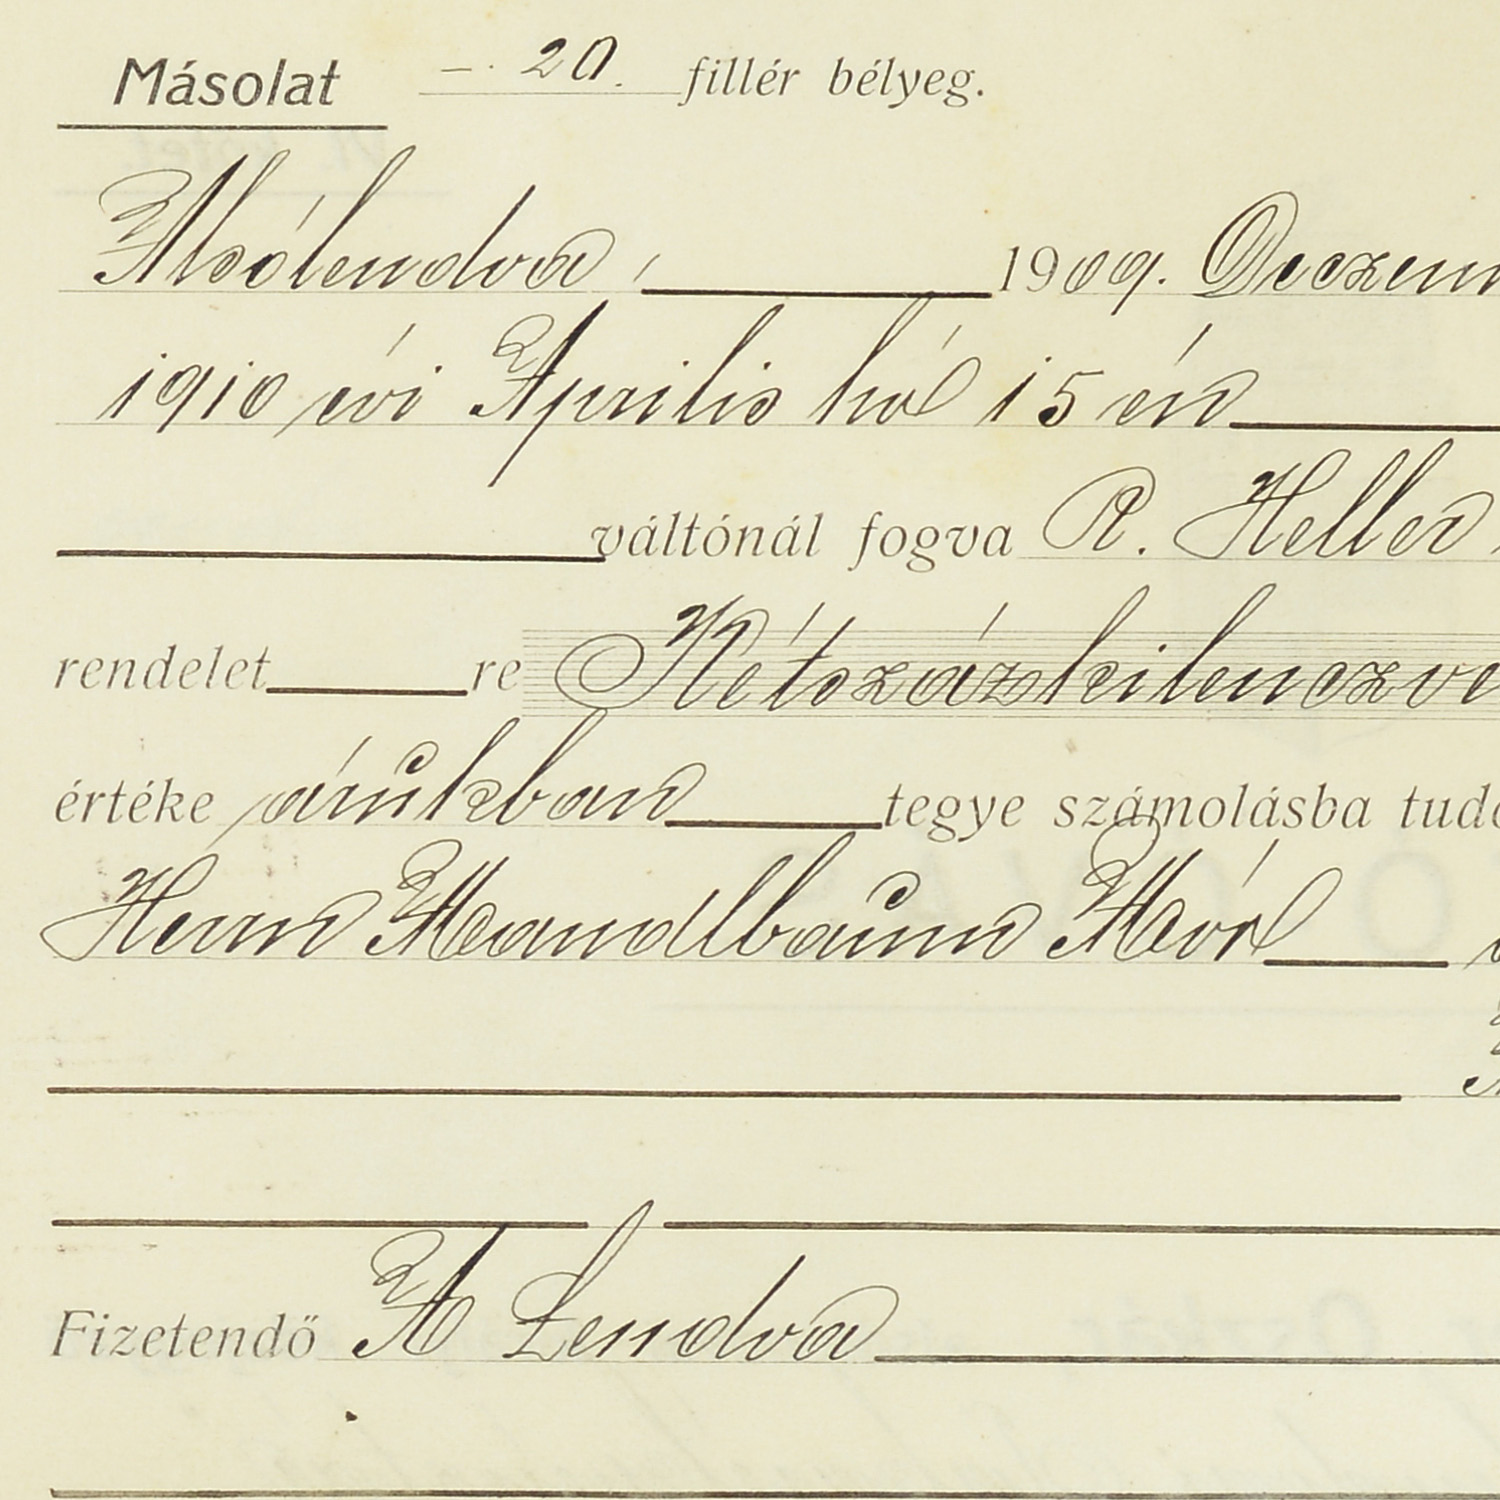 Másolat —. 20. fillér bélyeg.
Alsólendva, 1909. Deczem
1910 évi Április hó 15 én
váltónál fogva R. Heller
rendelet re Kétszázkilenczve
értéke árukban tegye számolásba tudó
Herrn Mandlbaum Mór
Fizetendő A Lendva